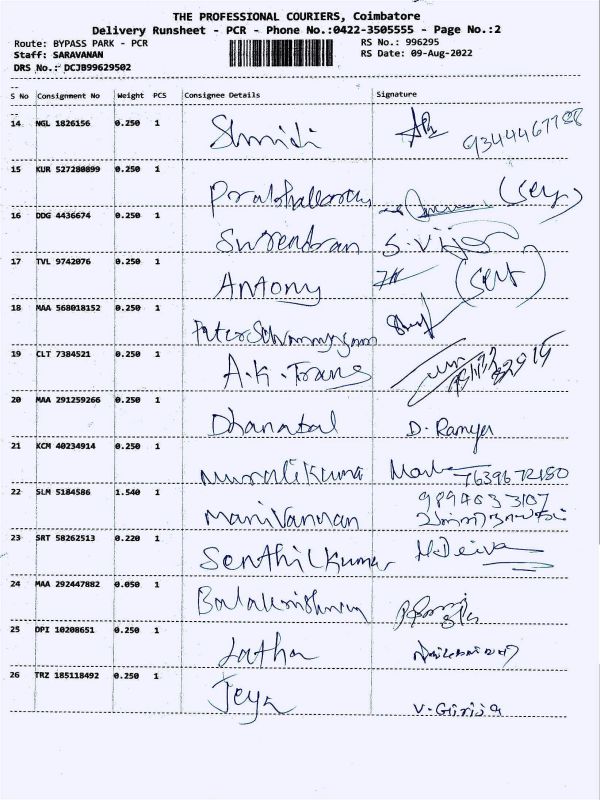 THE PROFESSIONAL COURIERS, Coimbatore
Delivery Runsheet - PCR - Phone No.:0422-3505555 - Page No.:2
Route: BYPASS PARK - PCR RS No.: 996295
Staff: SARAVANAN RS Date: 09-Aug-2022
DRS No.: DCJB99629502
S No Consignment No Weight PCS Consignee Details Signature
14 NGL 1826156 0.250 1
15 KUR 527280899 0.250 1
16 DDG 4436674 0.250 1 Surendran S. Vijay
17 TVL 9742076 0.250 1 Antony
18 MAA 568018152 0.250 1
19 CLT 7384521 0.250 1 A.K. Trans
20 MAA 291259266 0.250 1 Dhanabal D. Ramya
21 KCM 40234914 0.250 1 Muralikumar 7639672180
22 SLM 5184586 1.540 1 Manivannan
23 SRT 58262513 0.220 1 Senthilkumar M. Deiva
24 MAA 292447882 0.050 1 Balakrishnan
25 DPI 10208651 0.250 1 Latha
26 TRZ 185118492 0.250 1 Jeya V. Girija